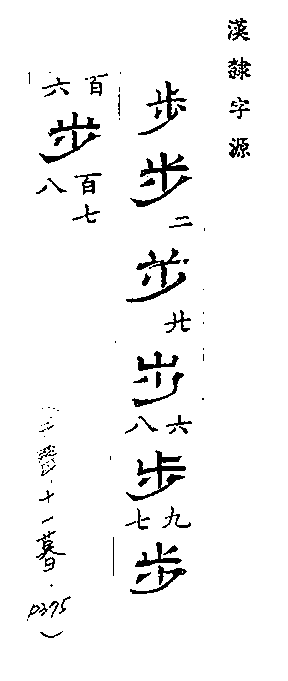 漢隸字源
步步二步廿步六八步九七步
百六步百七八
十一暮·p395）